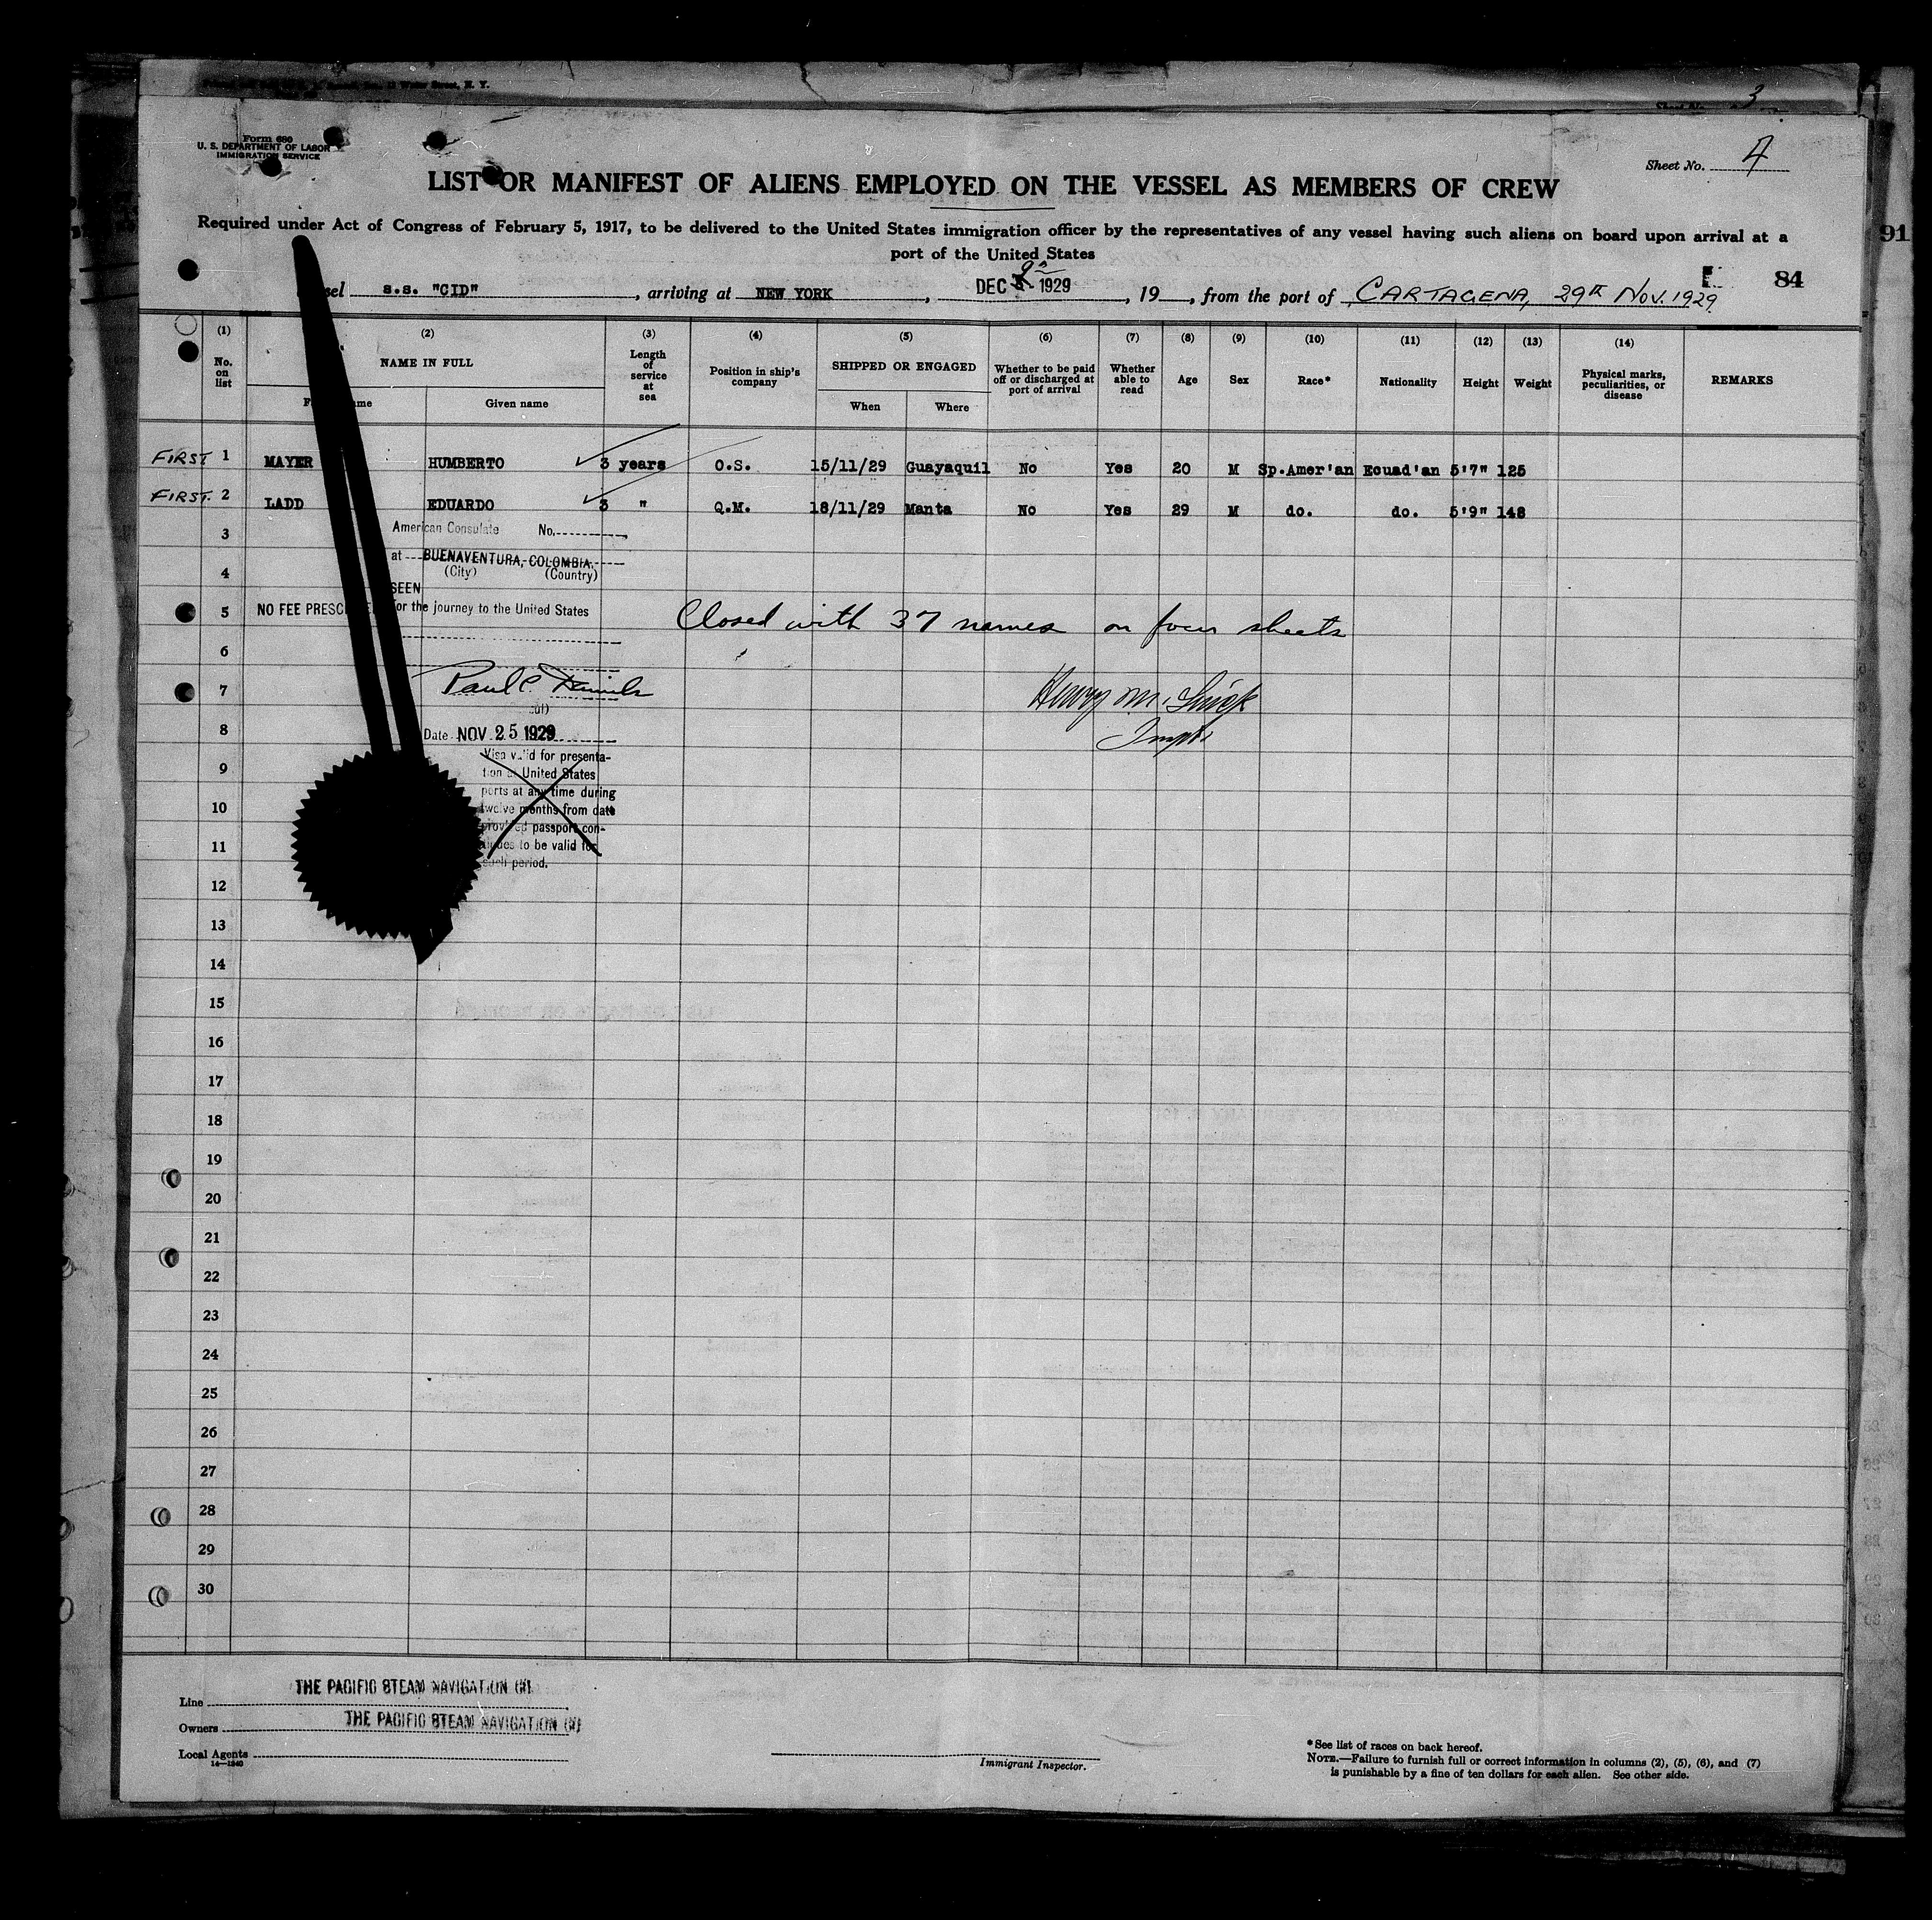 Water Street, N. Y.
3
Form 680
U. S. DEPARTMENT OF LABOR
IMMIGRATION SERVICE
Sheet No. 4
LIST OR MANIFEST OF ALIENS EMPLOYED ON THE VESSEL AS MEMBERS OF CREW
Required under Act of Congress of February 5, 1917, to be delivered to the United States immigration officer by the representatives of any vessel having such aliens on board upon arrival at a
port of the United States
91
E. 84
s.s. "CID", arriving at NEW YORK, DEC 9th 1929, 19, from the port of CARTAGENA, 29th Nov. 1929.
(1) (2) (3) (4) (5) (6) (7) (8) (9) (10) (11) (12) (13) (14)
No. on list NAME IN FULL Length of service at sea Position in ship's company SHIPPED OR ENGAGED Whether to be paid off or discharged at port of arrival Whether able to read Age Sex Race* Nationality Height Weight Physical marks, peculiarities, or disease REMARKS
Given name When Where
FIRST 1 MAYER HUMBERTO 3 years O.S. 15/11/29 Guayaquil No Yes 20 M Sp.Amer'an Ecuad'an 5'7" 125
FIRST 2 LADD EDUARDO 3 " Q.M. 18/11/29 Manta No Yes 29 M do. do. 5'9" 148
American Consulate No.
3
at BUENAVENTURA, COLOMBIA.
4 (City) (Country)
SEEN
5 NO FEE for the journey to the United States
Closed with 37 names on four sheets
6
7 Paul C. Daniels
Henry M.
8 Date NOV 25 1929
Visa valid for presenta-
9 tion at United States
ports at any time during
10 twelve months from date
provided passport con-
11 tinues to be valid for
such period.
12
13
14
15
16
17
18
19
20
21
22
23
24
25
26
27
28
29
30
Line THE PACIFIC STEAM NAVIGATION
Owners THE PACIFIC STEAM NAVIGATION
Local Agents
14—1240
Immigrant Inspector.
*See list of races on back hereof.
NOTE.—Failure to furnish full or correct information in columns (2), (5), (6), and (7)
is punishable by a fine of ten dollars for each alien. See other side.